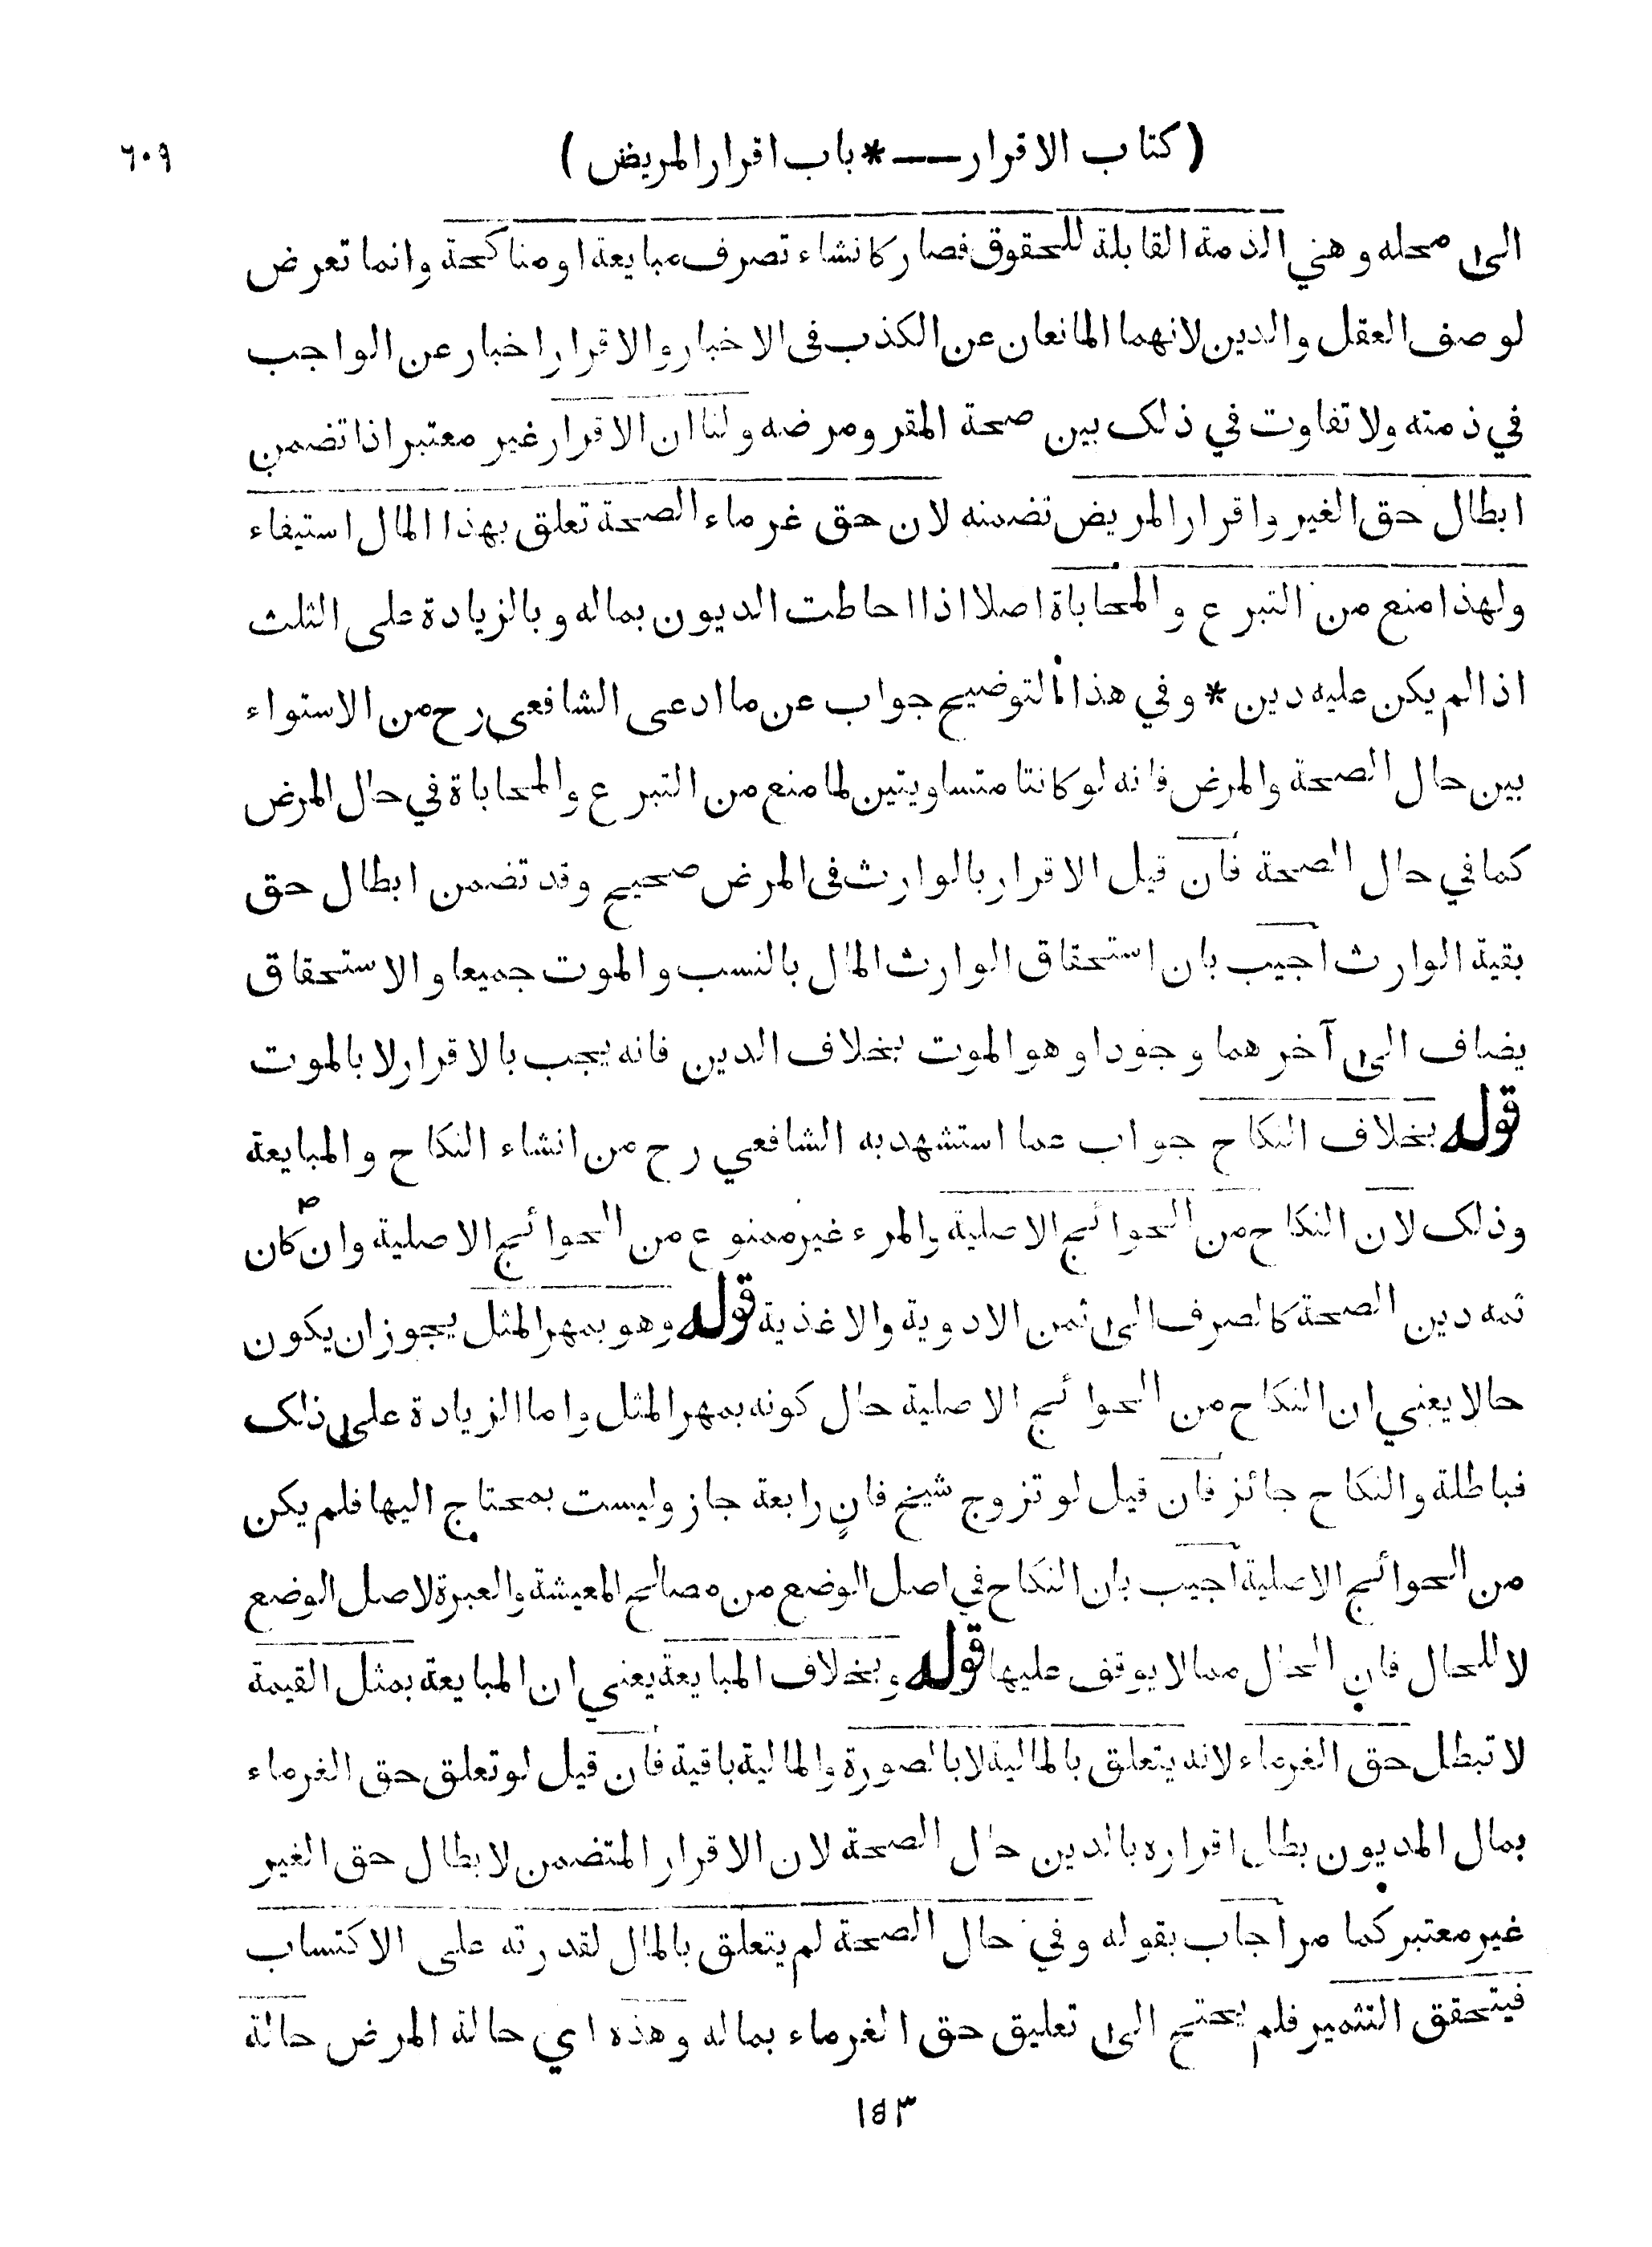 (كتاب الاقرار — * باب اقرار المريض) ٦٠٩
الى محله وهي الذمة القابلة للحقوق فصار كانشاء تصرف مبايعة او مناكحة وانما تعرض
لوصف العقل والدين لانهما المانعان عن الكذب فى الاخبار والاقرار اخبار عن الواجب
في ذمته ولا تفاوت في ذلك بين صحة المقر ومرضه ولنا ان الاقرار غير معتبر اذا تضمن
ابطال حق الغير واقرار المريض تضمنه لان حق غرماء الصحة تعلق بهذا المال استيفاء
ولهذا منع من التبرع والمحاباة اصلا اذا احاطت الديون بماله وبالزيادة على الثلث
اذا لم يكن عليه دين * وفي هذا التوضيح جواب عن ما ادعى الشافعى رح من الاستواء
بين حال الصحة والمرض فانه لو كانتا متساويتين لما منع من التبرع والمحاباة في حال المرض
كما في حال الصحة فان قيل الاقرار بالوارث فى المرض صحيح وقد تضمن ابطال حق
بقية الوارث اجيب بان استحقاق الوارث المال بالنسب والموت جميعا والاستحقاق
يضاف الى آخرهما وجودا وهو الموت بخلاف الدين فانه يجب بالاقرار لا بالموت
قوله بخلاف النكاح جواب عما استشهد به الشافعي رح من انشاء النكاح والمبايعة
وذلك لان النكاح من الحوائج الاصلية والمرء غير ممنوع من الحوائج الاصلية وان كان
ثمه دين الصحة كالصرف الى ثمن الادوية والاغذية قوله وهو بمهر المثل يجوز ان يكون
حالا يعني ان النكاح من الحوائج الاصلية حال كونه بمهر المثل واما الزيادة على ذلك
فباطلة والنكاح جائز فان قيل لو تزوج شيخ فانٍ رابعة جاز وليست بمحتاج اليها فلم يكن
من الحوائج الاصلية اجيب بان النكاح في اصل الوضع من مصالح المعيشة والعبرة لاصل الوضع
لا للحال فان الحال مما لا يوقف عليها قوله وبخلاف المبايعة يعني ان المبايعة بمثل القيمة
لا تبطل حق الغرماء لانه يتعلق بالمالية لا بالصورة والمالية باقية فان قيل لو تعلق حق الغرماء
بمال المديون بطل اقراره بالدين حال الصحة لان الاقرار المتضمن لابطال حق الغير
غير معتبر كما مر اجاب بقوله وفي حال الصحة لم يتعلق بالمال لقدرته على الاكتساب
فيتحقق التثمير فلم يحتج الى تعليق حق الغرماء بماله وهذه اي حالة المرض حالة
١٤٣